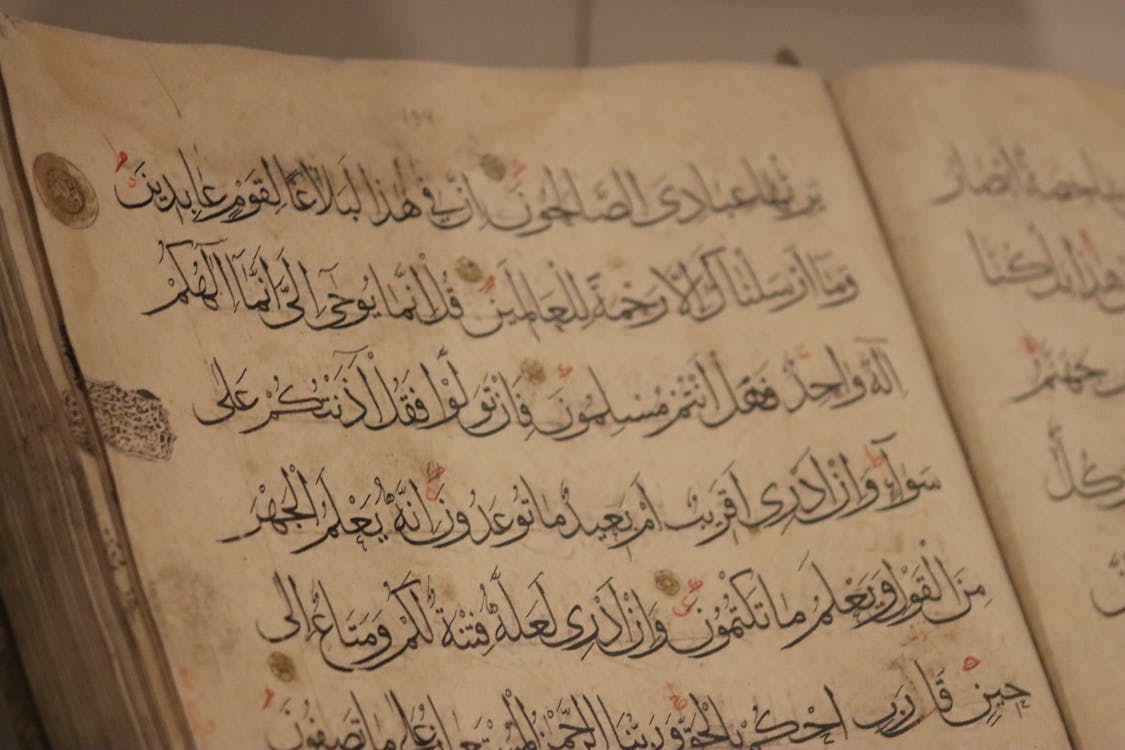 شاخصة أبصار
هذا بل كنا
جهنم
وكل
يَرِثُهَا عِبَادِيَ الصَّالِحُونَ إِنَّ فِي هَٰذَا لَبَلَاغًا لِقَوْمٍ عَابِدِينَ
وَمَا أَرْسَلْنَاكَ إِلَّا رَحْمَةً لِلْعَالَمِينَ قُلْ إِنَّمَا يُوحَىٰ إِلَيَّ أَنَّمَا إِلَٰهُكُمْ
إِلَٰهٌ وَاحِدٌ فَهَلْ أَنْتُمْ مُسْلِمُونَ فَإِنْ تَوَلَّوْا فَقُلْ آذَنْتُكُمْ عَلَىٰ
سَوَاءٍ وَإِنْ أَدْرِي أَقَرِيبٌ أَمْ بَعِيدٌ مَا تُوعَدُونَ إِنَّهُ يَعْلَمُ الْجَهْرَ
مِنَ الْقَوْلِ وَيَعْلَمُ مَا تَكْتُمُونَ وَإِنْ أَدْرِي لَعَلَّهُ فِتْنَةٌ لَكُمْ وَمَتَاعٌ إِلَىٰ
حِينٍ قَالَ رَبِّ احْكُمْ بِالْحَقِّ وَرَبُّنَا الرَّحْمَٰنُ الْمُسْتَعَانُ عَلَىٰ مَا تَصِفُونَ